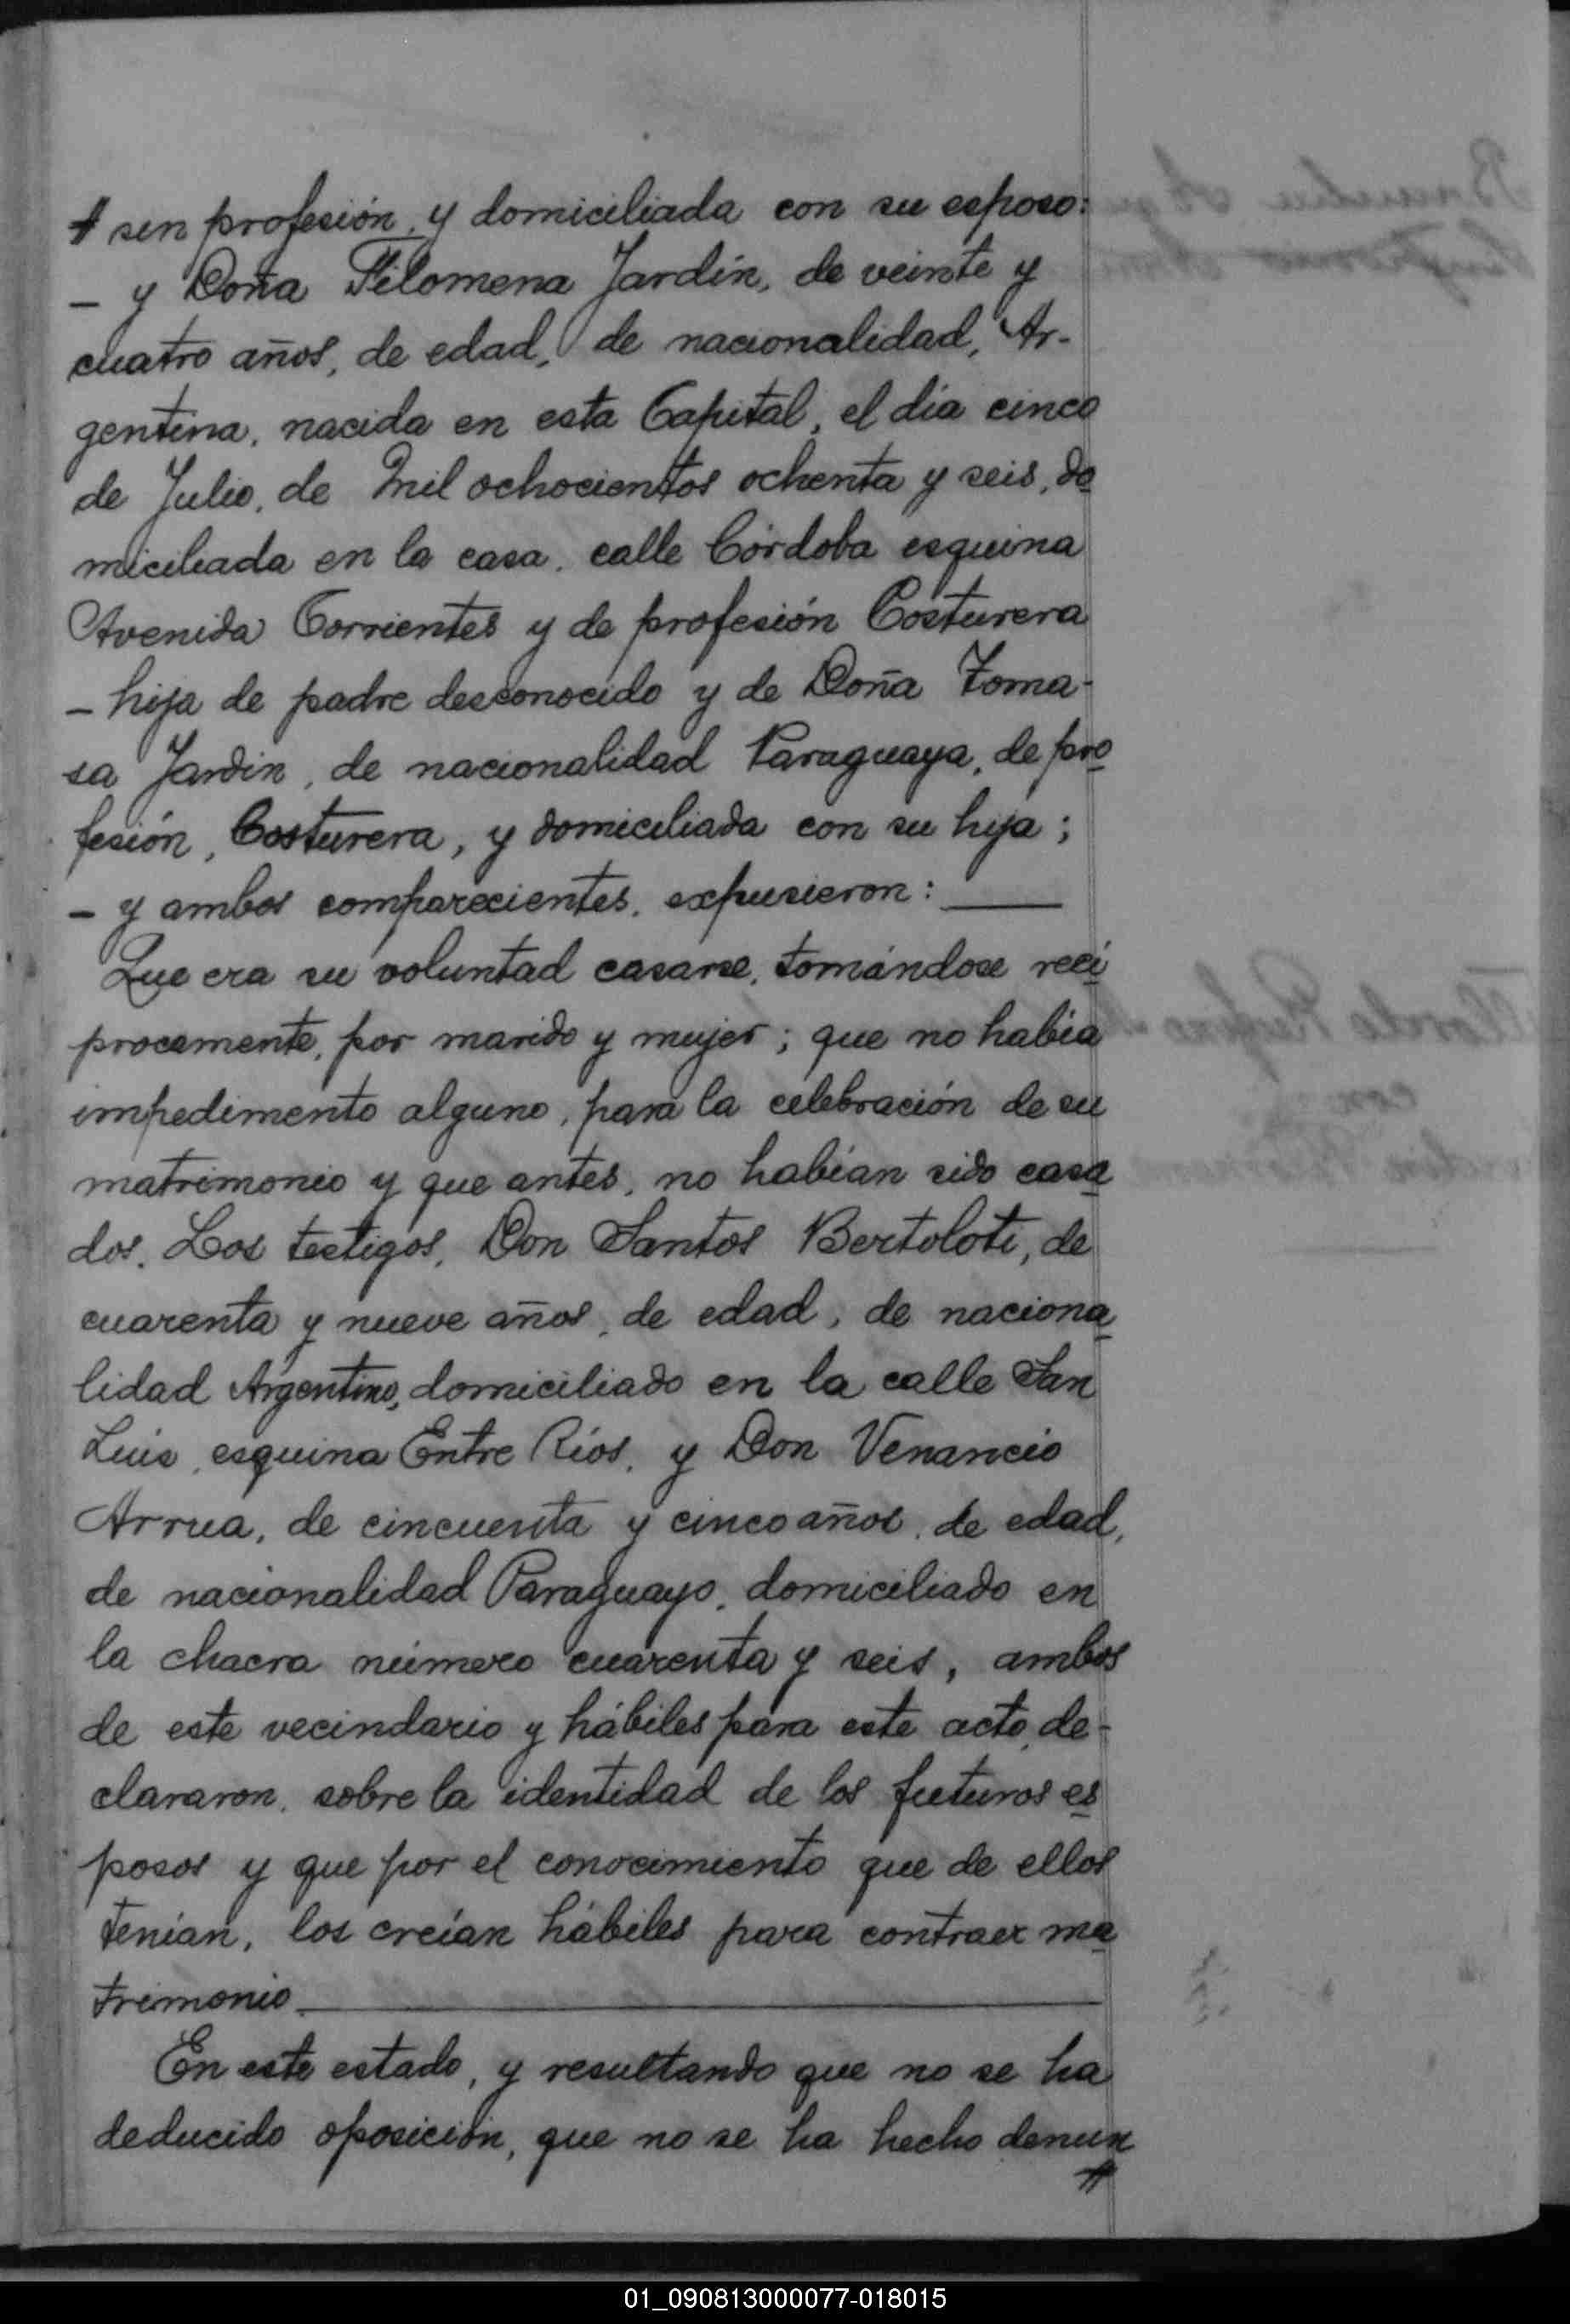 # sin profesión, y domiciliada con su esposo:
– y Doña Filomena Jardín, de veinte y
cuatro años, de edad, de nacionalidad, Ar-
gentina, nacida en esta Capital, el día cinco
de Julio, de mil ochocientos ochenta y seis, do
miciliada en la casa, calle Córdoba esquina
Avenida Corrientes y de profesión Costurera
– hija de padre desconocido y de Doña Toma-
sa Jardin, de nacionalidad Paraguaya, de pro
fesión, Costurera, y domiciliada con su hija;
– y ambos comparecientes, expusieron:
Que era su voluntad casarse, tomándose reci
procamente, por marido y mujer; que no había
impedimento alguno, para la celebración de su
matrimonio y que antes, no habían sido casa
dos. Los testigos, Don Santos Bertoloti, de
cuarenta y nueve años, de edad, de naciona
lidad Argentino, domiciliado en la calle San
Luis, esquina Entre Ríos, y Don Venancio
Arrua, de cincuenta y cinco años, de edad,
de nacionalidad Paraguayo, domiciliado en
la chacra número cuarenta y seis, ambos
de este vecindario y hábiles para este acto, de-
clararon, sobre la identidad de los futuros es
posos y que por el conocimiento que de ellos
tenían, los creían hábiles para contraer ma
trimonio.
En este estado, y resultando que no se ha
deducido oposición, que no se ha hecho denun
#
01_090813000077-018015